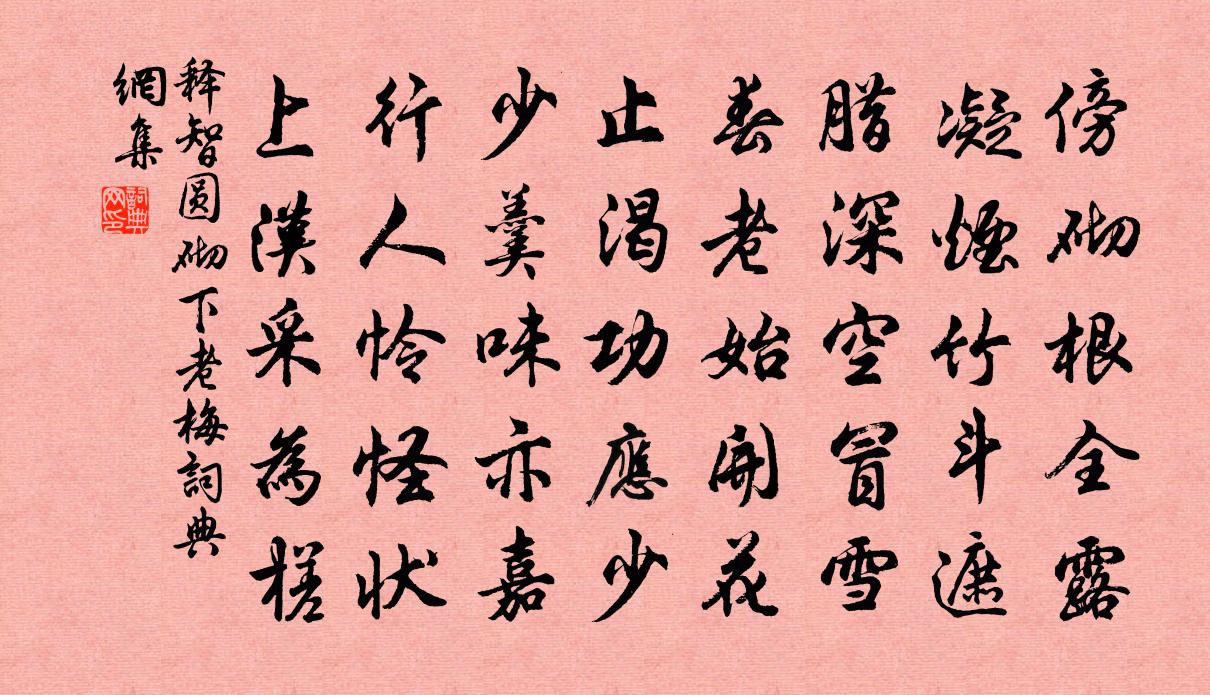 傍砌根全露
凝煙竹斗遮
腊深空冒雪
春老始開花
止渴功應少
少羹味亦嘉
行人怜怪状
上漢采為槎
释智圆砌下老梅詞典
網集
詞典网印